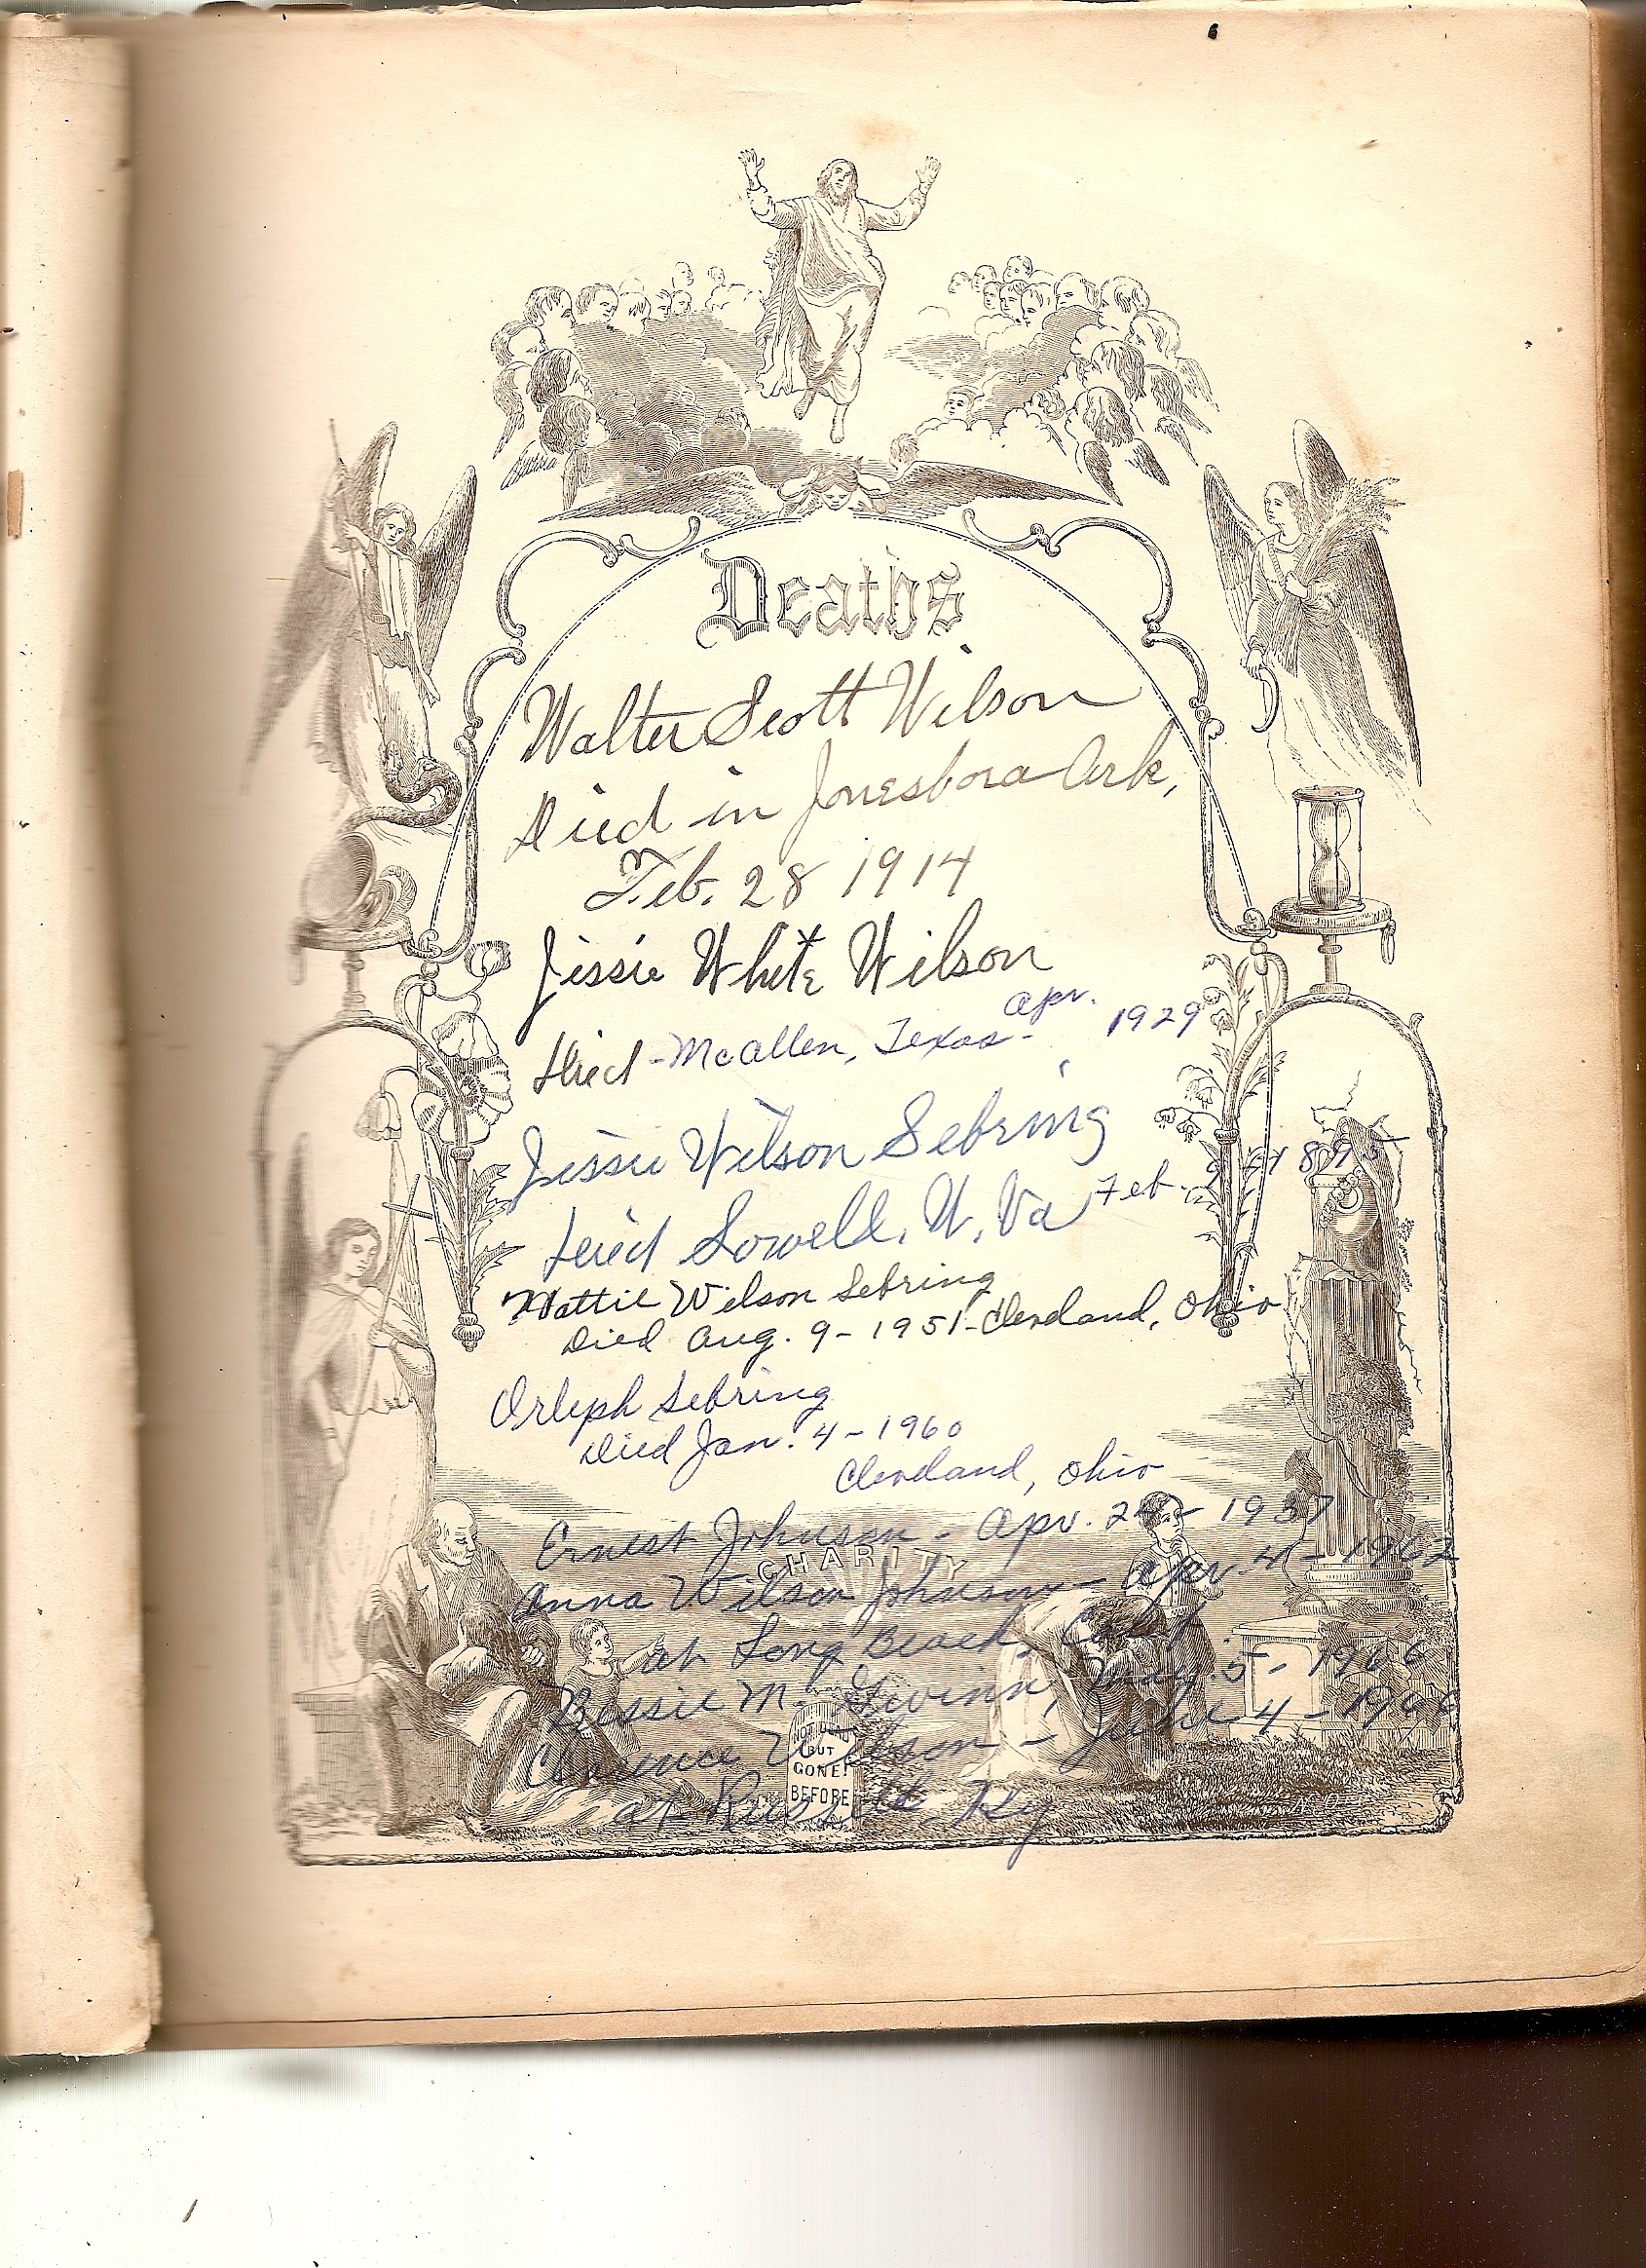 Deaths
Walter Scott Wilson
Died in Jonesboro Ark,
Feb. 28 1914
Jessie White Wilson
Died - McAllen, Texas - Apr. 1929
Jessie Wilson Sebring
Died Lowell, W. Va Feb. 1895
Mattie Wilson Sebring
Died Aug. 9 - 1951 - Cleveland, Ohio
Orleph Sebring
Died Jan. 4 - 1960
Cleveland, Ohio
Ernest Johnson - Apr. - 1937
CHARITY
Anna Wilson Johnson - Apr 4 - 1962
at Long Beach, Calif.
Bessie M. May. 5 - 1966
Clarence Wilson - June 4 - 1966
at Ky
BUT
GONE!
BEFORE